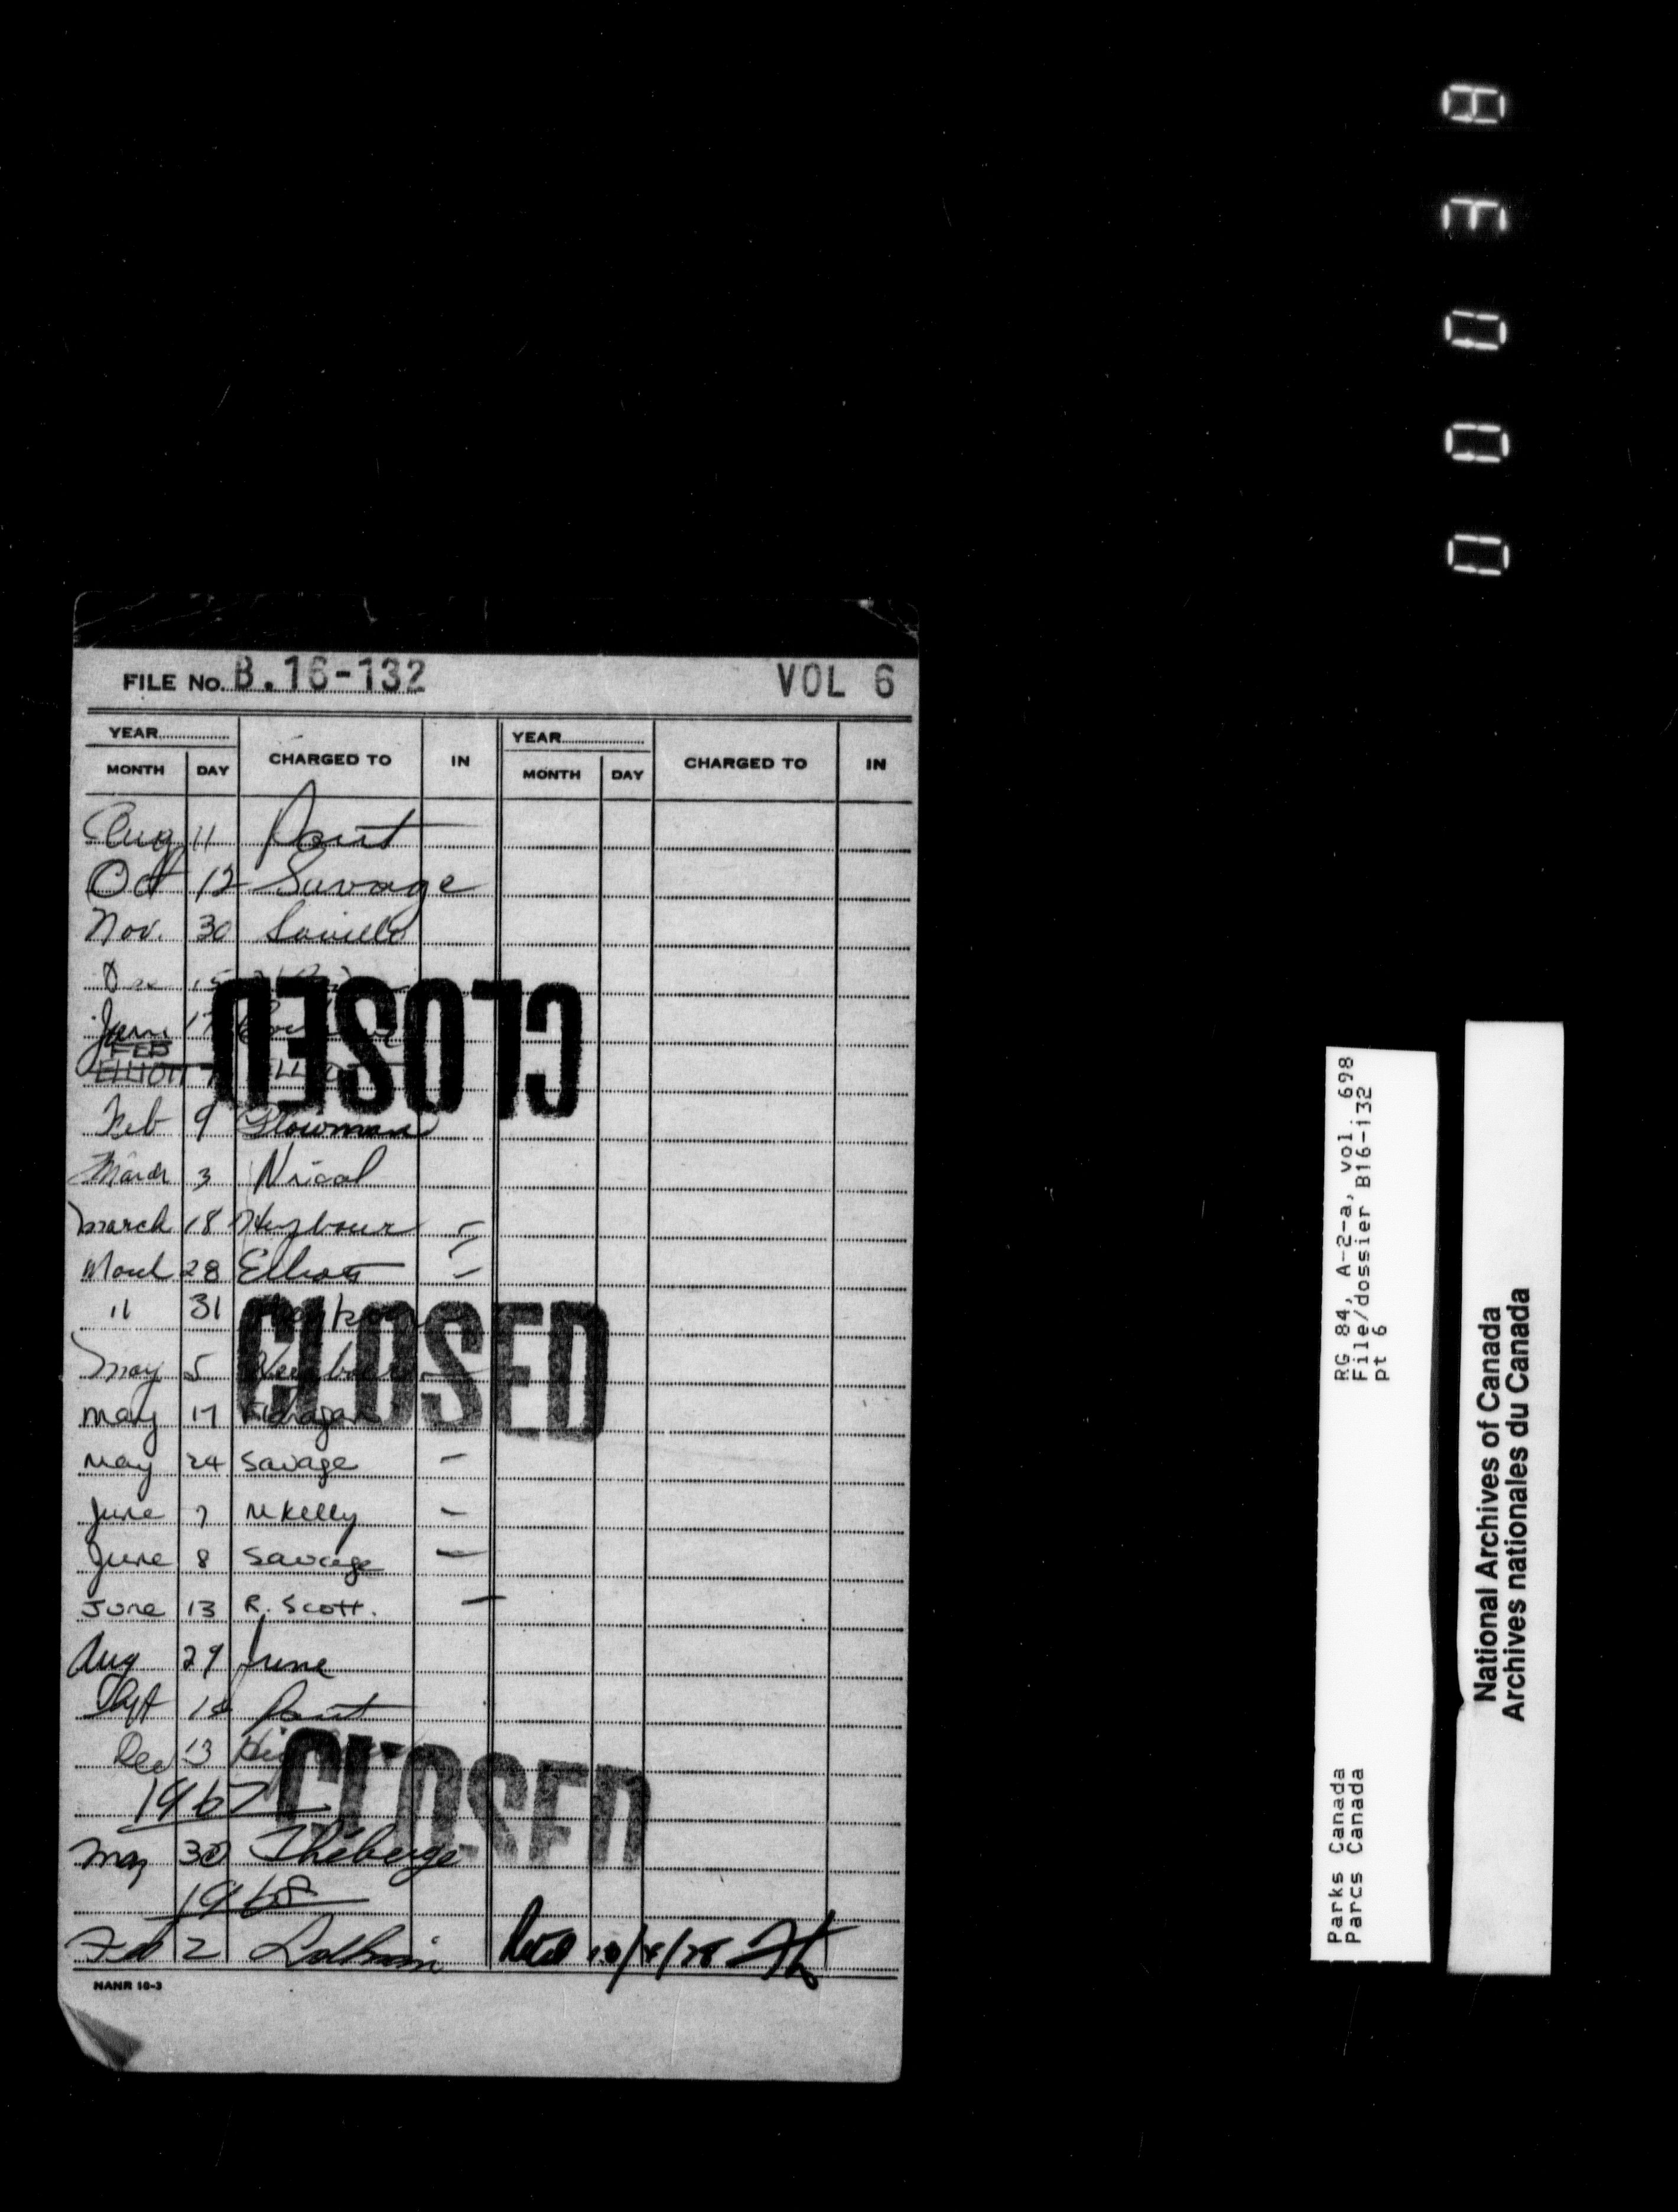 FILE No. B.16-132 VOL 6
YEAR YEAR
MONTH DAY CHARGED TO IN MONTH DAY CHARGED TO IN
Aug 11
Oct 12 Savage
Nov. 30
15
Jan 17
FEB
ELLIOTT 7
CLOSED
Feb 9 Plowman
March 3 Nicol
March 18
March 28 Elliott
" 31
CLOSED
May 5
May 17 Flanagan
May 24 Savage
June 7 M Kelly
June 8 Savage
June 13 R. Scott.
Aug 29 June
Sept
Dec 13
CLOSED
1967
May 30 Théberge
1968
Feb 2
NANR 16-3
RG 84, A-2-a, vol. 698
File/dossier B16-132
pt 6
Parks Canada
Parcs Canada
National Archives of Canada
Archives nationales du Canada